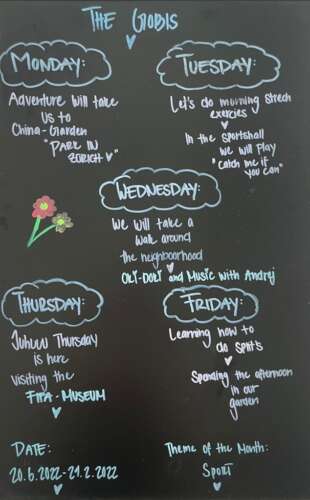 The Gobis
Monday:
Adventure will take
us to
China-Garden
"Park in
Zürich"
Tuesday:
Let's do morning strech
exercies
In the sportshall
we will play
"catch me if
you can"
Wednesday:
We will take a
walk around
the neighbourhood
Okt-Dokt and Music with Andrej
Thursday:
Juhuu Thursday
is here
Visiting the
FIFA-Museum
Friday:
Learning how to
do split's
Spending the afternoon
in our
garden
Date:
20.6.2022-24.2.2022
Theme of the Month:
Sport